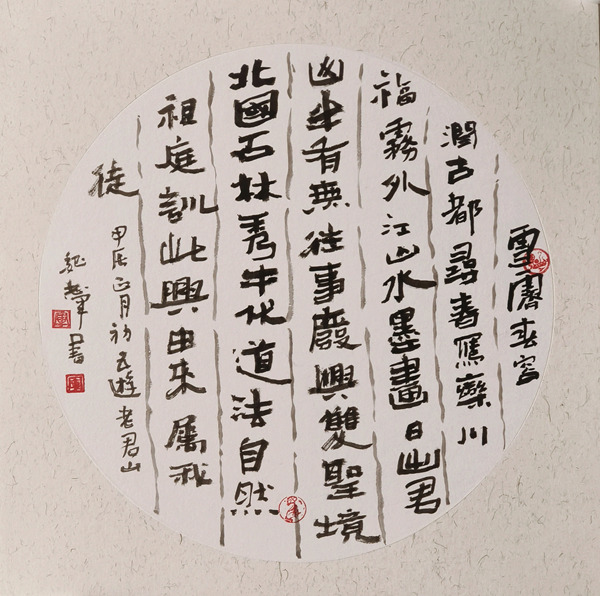 雪春容
潤古都尋春欒川
福霧外江山水墨畫日出君
山半有無往事廢興雙聖境
北國石林秀代道法自然
祖庭訓此興由來屬我
徒
甲辰正月初五遊老君山
紀書